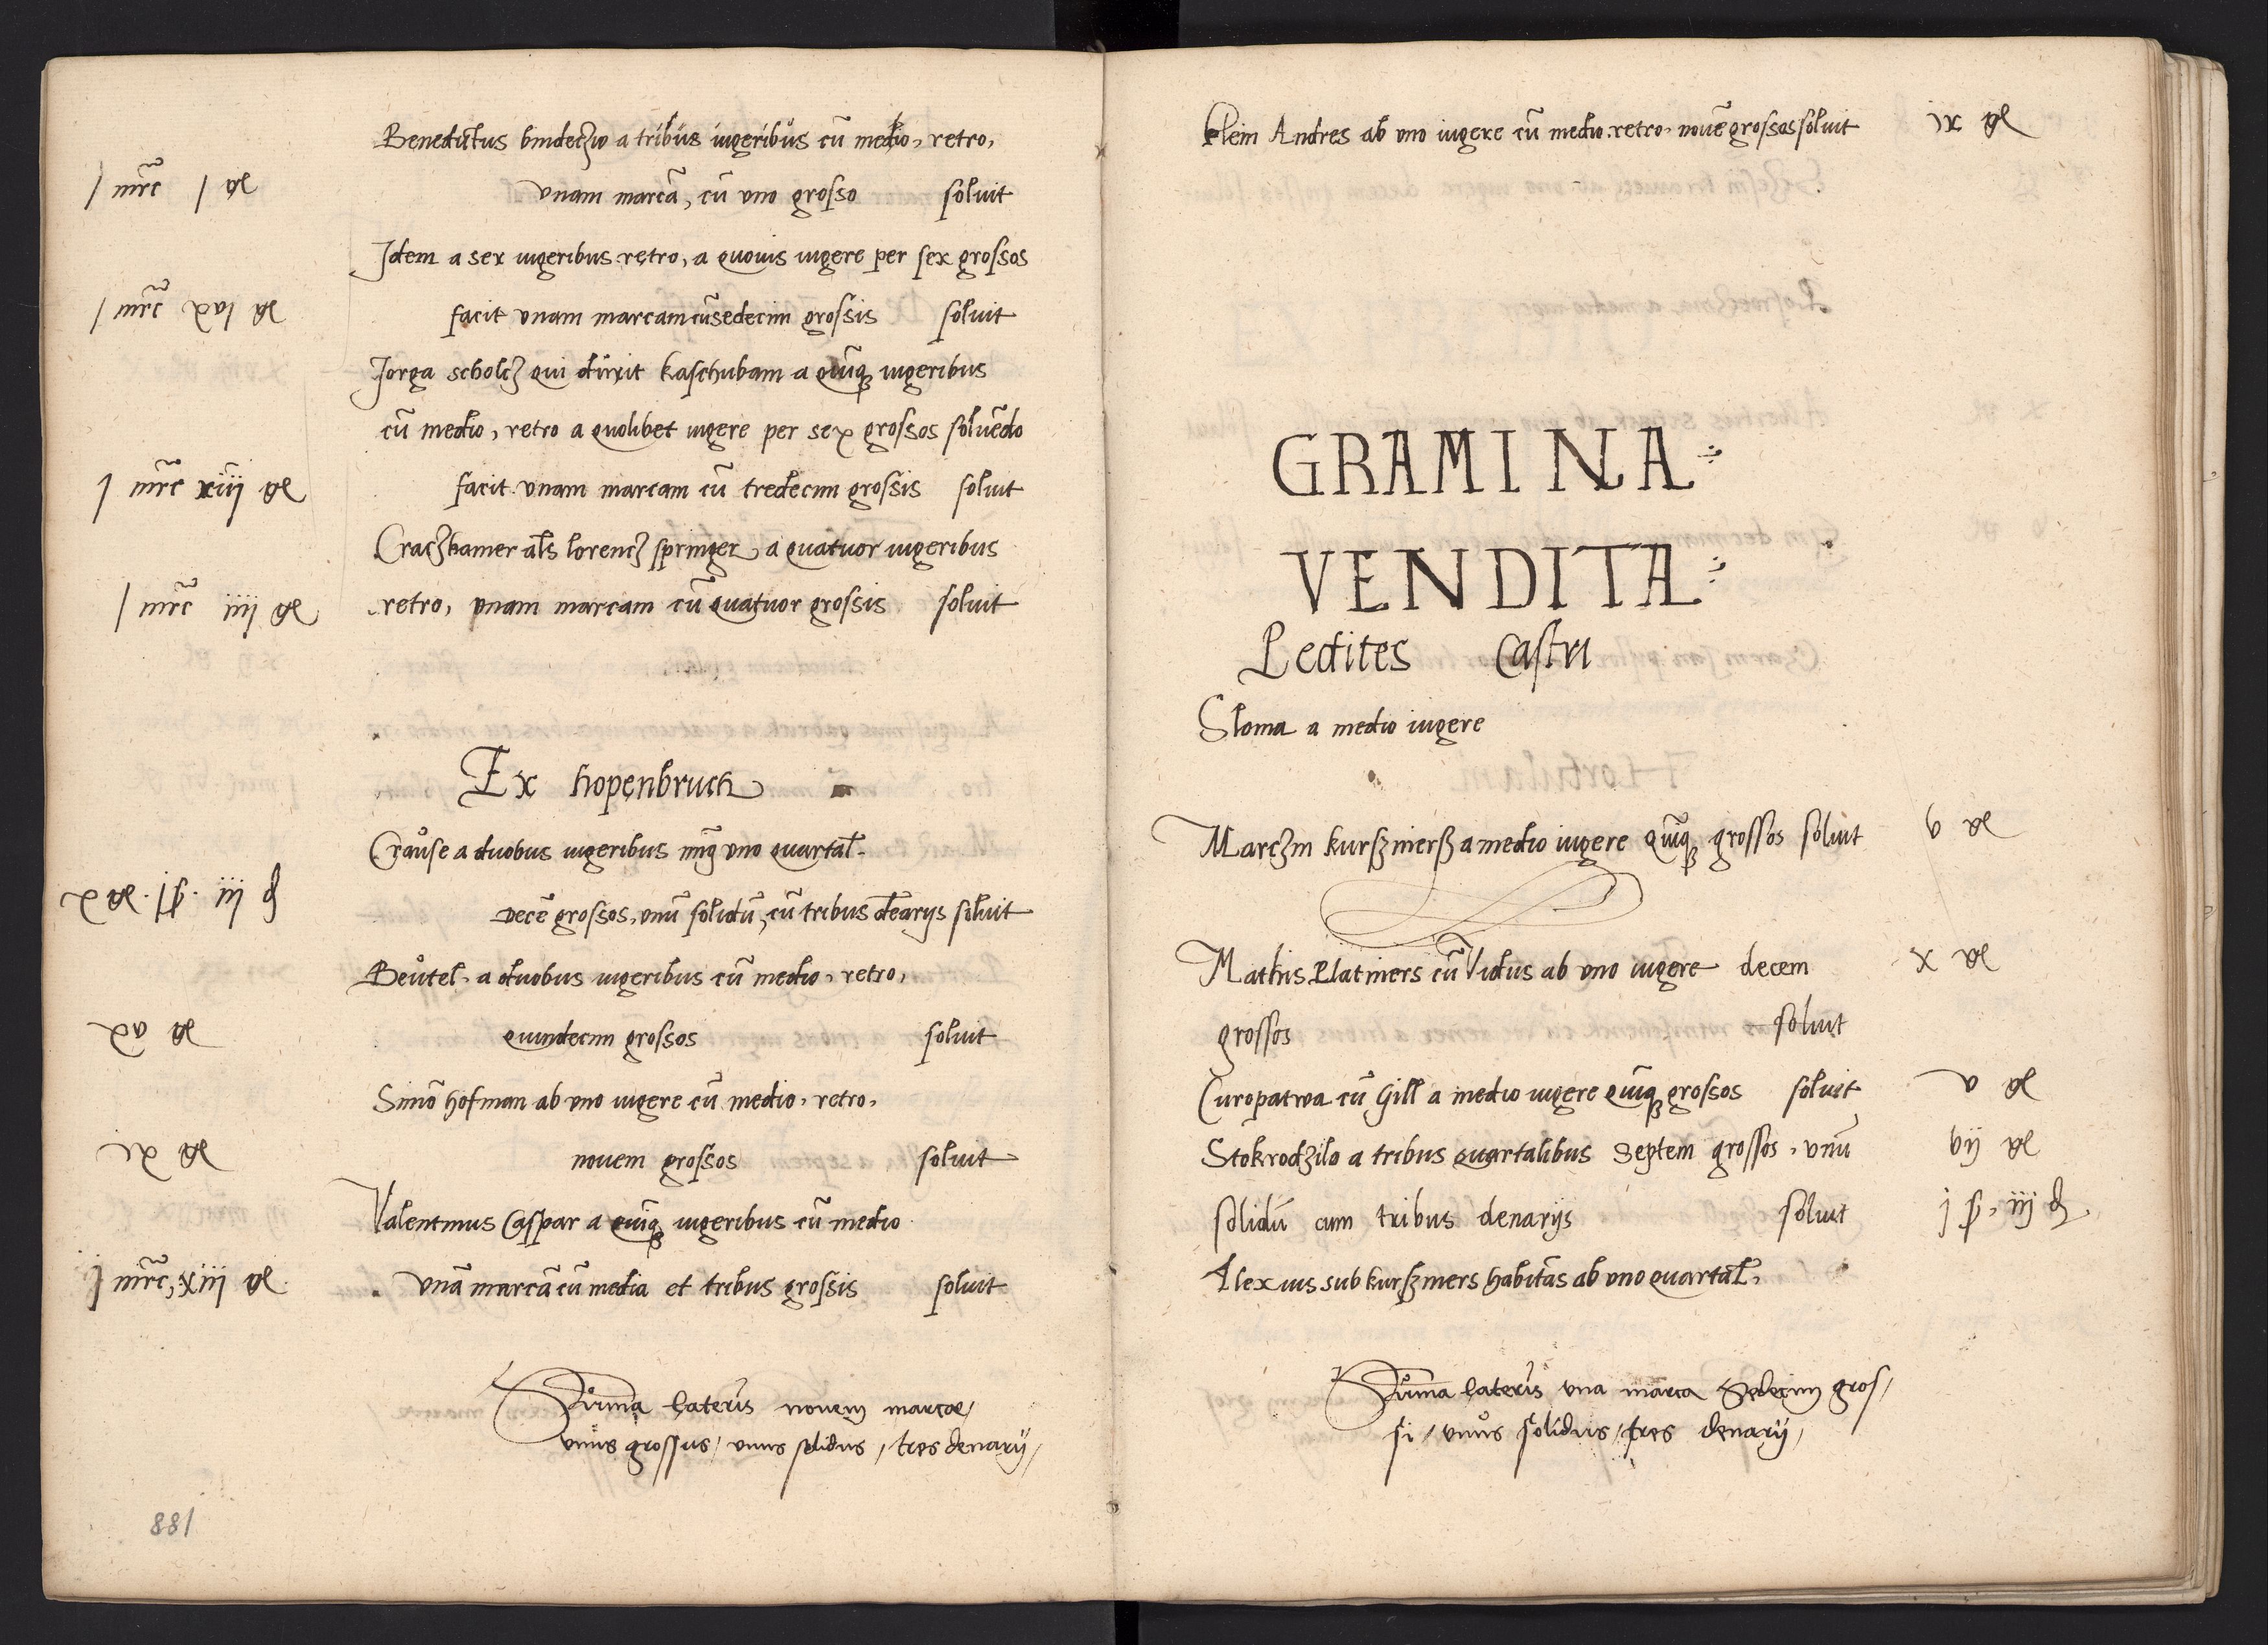 Benedictus bindeczio a tribus iugeribus cū medio, retro,
/ mrc / gl vnam marcā, cū vno grosso soluit
Idem a sex iugeribus retro, a quouis iugere per sex grossos
/ mrc xvj gl facit vnam marcam cū sedecim grossis soluit
Jorga scholcz qui duxit kaschubam a quīq iugeribus
cū medio, retro a quolibet iugere per sex grossos soluēdo
j mrc xiij gl facit vnam marcam cū tredecim grossis soluit
Craczkamer als lorencz springer a quatuor iugeribus
/ mrc iiij gl retro, vnam marcam cū quatuor grossis soluit
Ex hopenbruch
Crause a duobus iugeribus vno quartal.
x gl. j ſ. iij d decē grossos, vnū solidū, cū tribus denarijs soluit
Beutel. a duobus iugeribus cū medio, retro,
xv gl quindecim grossos soluit
Simō hofman ab vno iugere cū medio, retro,
ix gl nouem grossos soluit
Valentinus Caspar a quīq iugeribus cū medio
j mrc, xiij gl vnā marcā cū media et tribus grossis soluit
Summa Lateris nouem marcae/
vnus grossus/ vnus solidus/ tres denarij/
881
klein Andres ab vno iugere cū medio retro. nouē grossos soluit ix gl
GRAMINA
VENDITA
Pedites Castri
Sloma a medio iugere
Marczin kurszniersz a medio iugere quīq grossos soluit v gl
Mathis Platners cū Vidus ab vno iugere decem x gl
grossos soluit
Curopatwa cū Gill a medio iugere quīq grossos soluit v gl
Stokrodzilo a tribus quartalibus Septem grossos, vnū vij gl
solidū cum tribus denarijs soluit j ſ, iij d.
Alexius sub kurszners habitās ab vno quartal.
Summa Lateris vna marca Sedecim gros/
si/ vnus solidus/ tres denarij/